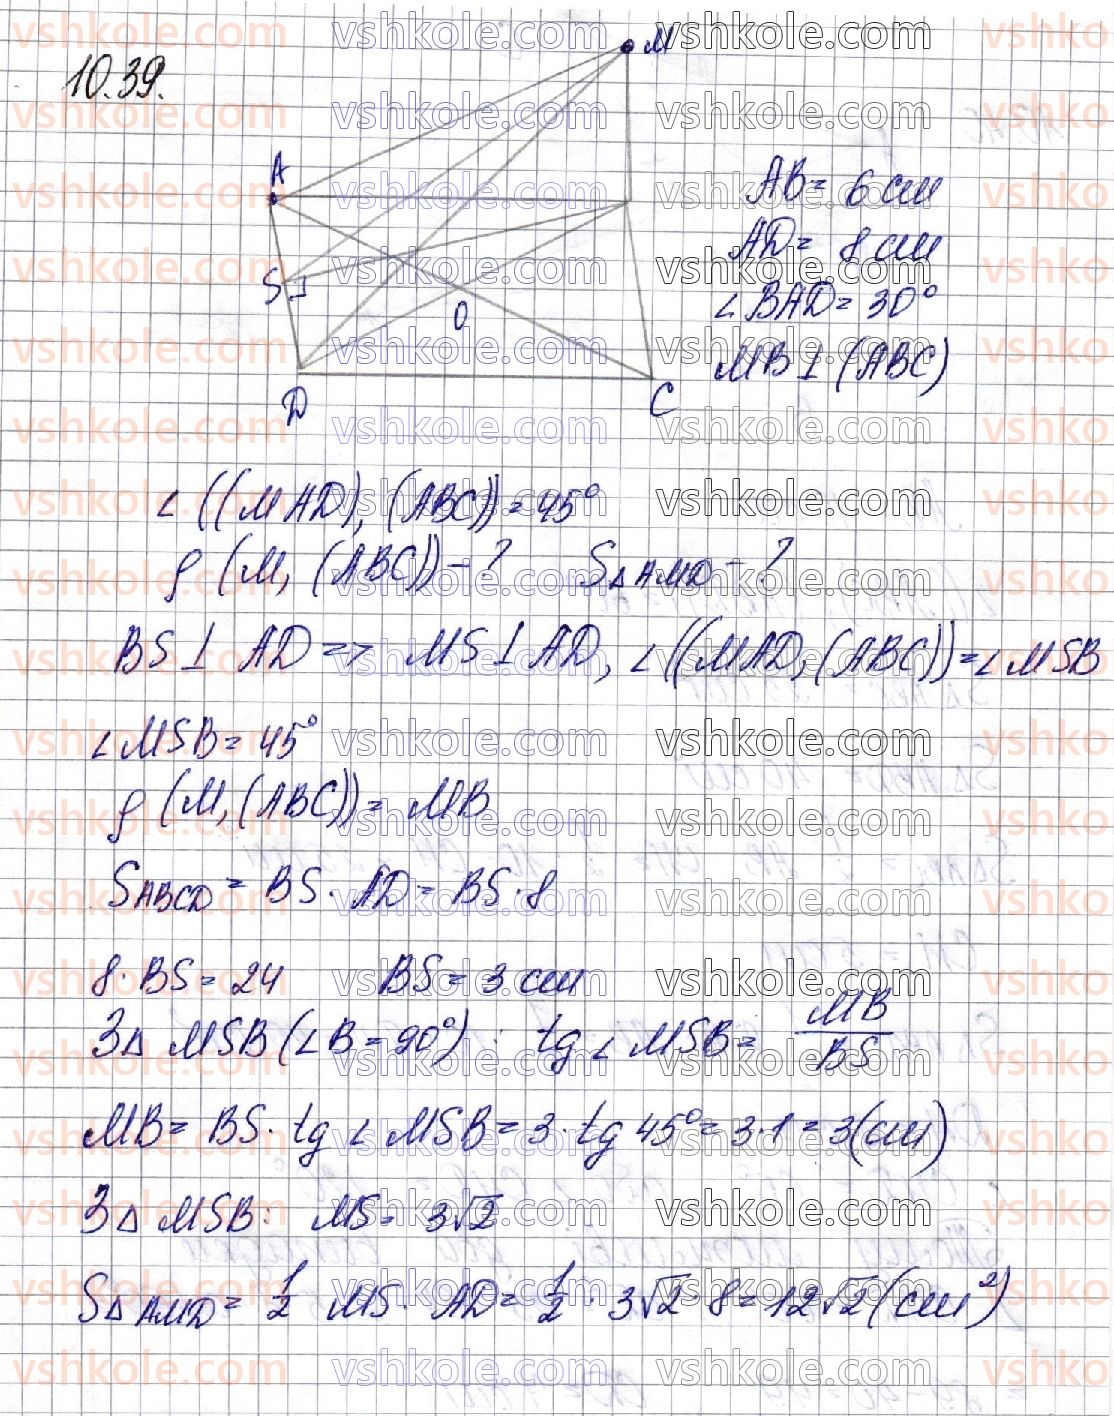 10.39.
M
A
S
O
D
C
AB = 6 см
AD = 8 см
∠BAD = 30°
MB ⊥ (ABC)
∠((MAD), (ABC)) = 45°
ρ (M, (ABC)) - ? S△AMD - ?
BS ⊥ AD => MS ⊥ AD, ∠((MAD, (ABC)) = ∠MSB
∠MSB = 45°
ρ (M, (ABC)) = MB
SABCD = BS · AD = BS · 8
8 · BS = 24 BS = 3 см
З △ MSB (∠B = 90°) : tg ∠ MSB = MB/BS
MB = BS · tg ∠ MSB = 3 · tg 45° = 3 · 1 = 3 (см)
З △ MSB: MS = 3√2
S△AMD = 1/2 MS · AD = 1/2 · 3√2 · 8 = 12√2 (см²)
vshkole.com